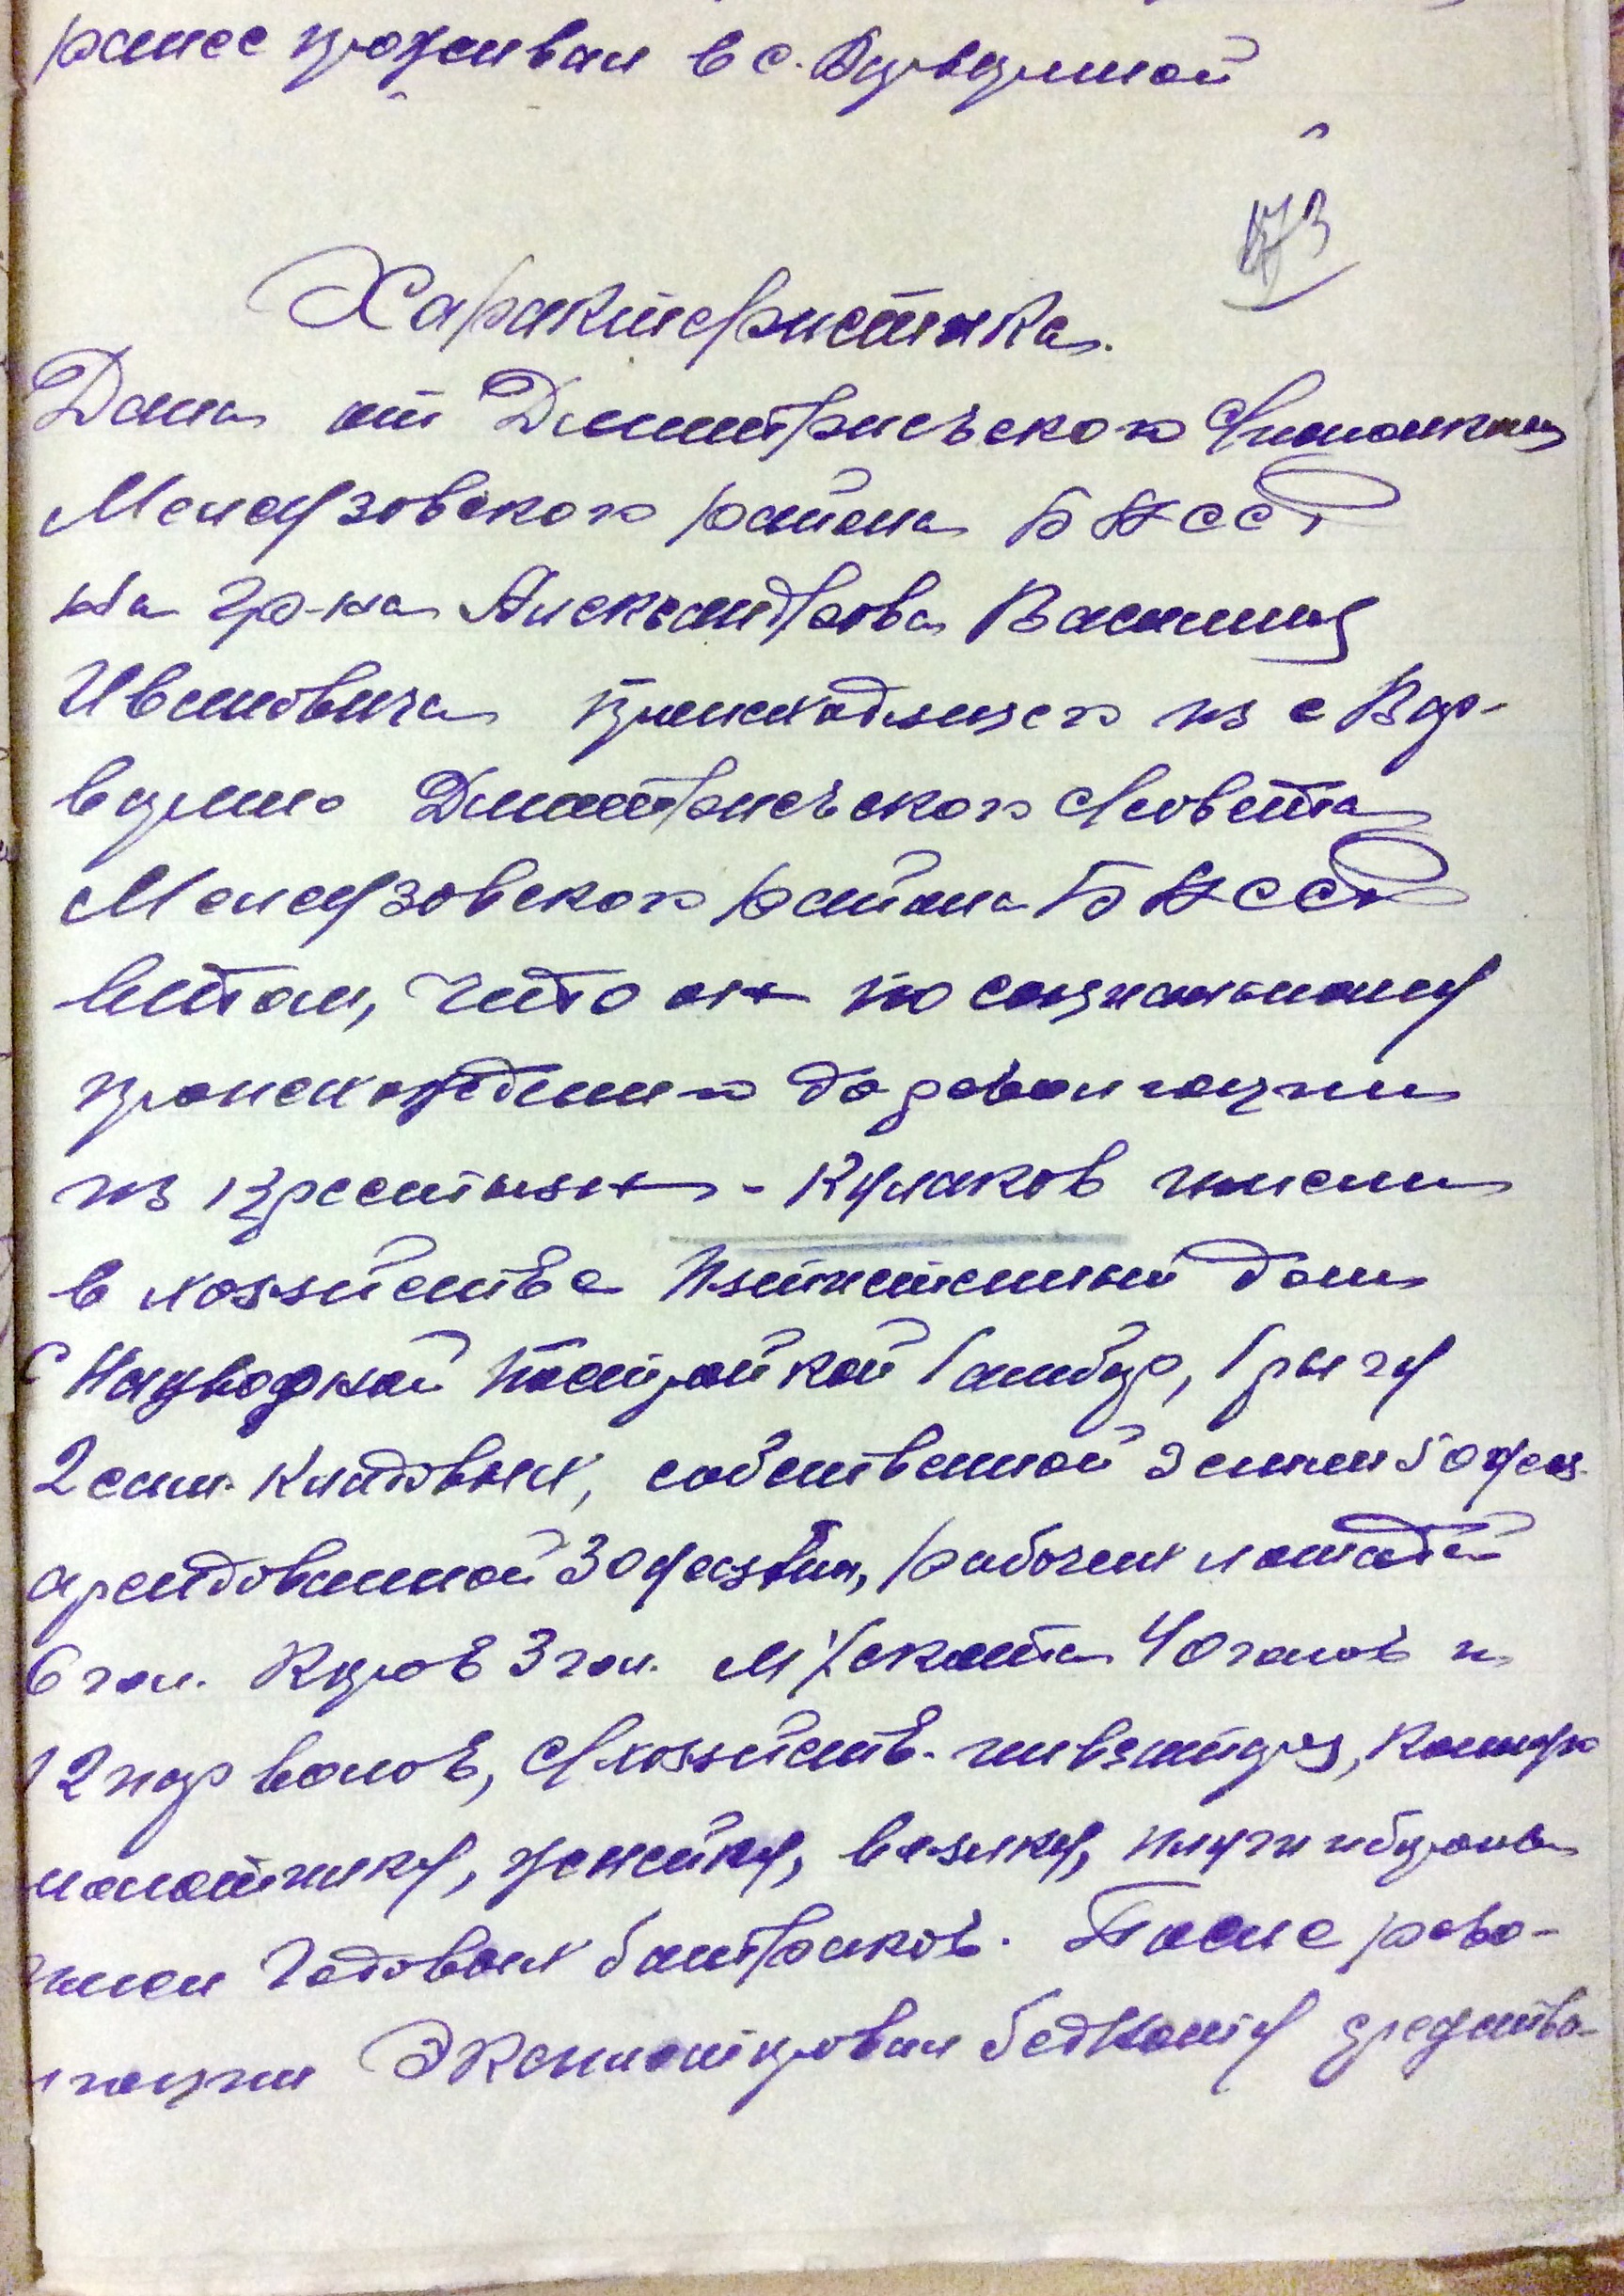 ранее проживал в с. Варварино
173
Характеристика.
Дана от Дмитриевского с/исполкома
Мелеузовского района БАССР
на гр-на Александрова Василия
Ивановича происходящего из с Вар-
варино Дмитриевского с/совета
Мелеузовского района БАССР
втом, что он по социальному
происхождению до революции
из крестьян - кулаков имели
в хозяйстве пятистенный дом
с надворной постройкой 1 амбар, 1 ригу
2 кладовых, собственной земли 50 дес.
арендованной 30 десятин, рабочих лошадей
6 гол. Коров 3 гол. м/скота 40 голов и
12 пар волов, с/хозяйств. инвентарь,
молотилку, жнейку, веялку, плуги и борона
имел годовых батраков. После рево-
люции Эксплоатировал бедноту средства-